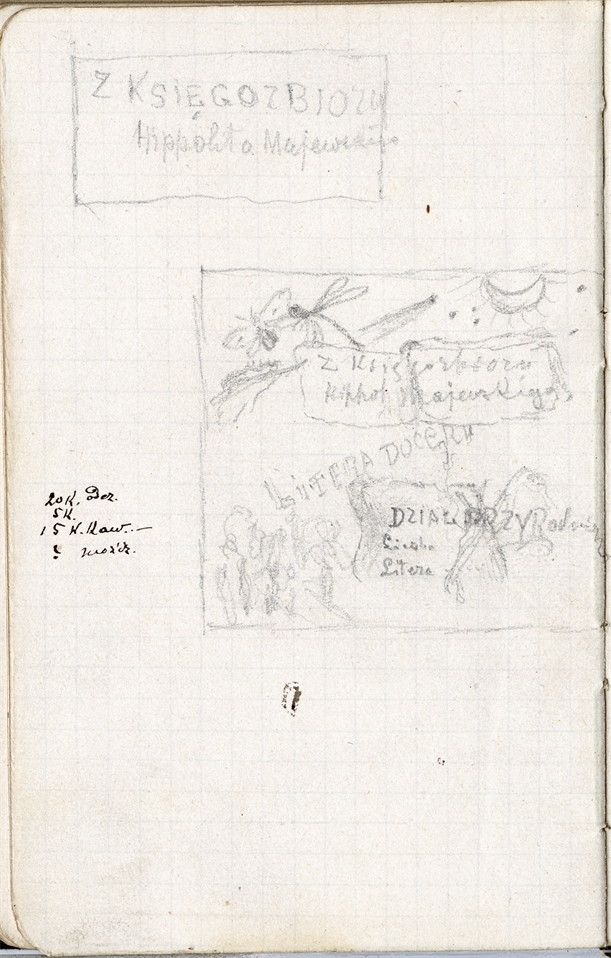 Z KSIĘGOZBIORU
Hippolita Majewskiego
Z Księgozbioru
Hippol. Majewskiego
LITERA DOCET
DZIAŁ PRZYRodni
Liczba
Litera
20 K.
5 K.
15 K. Kaw. —